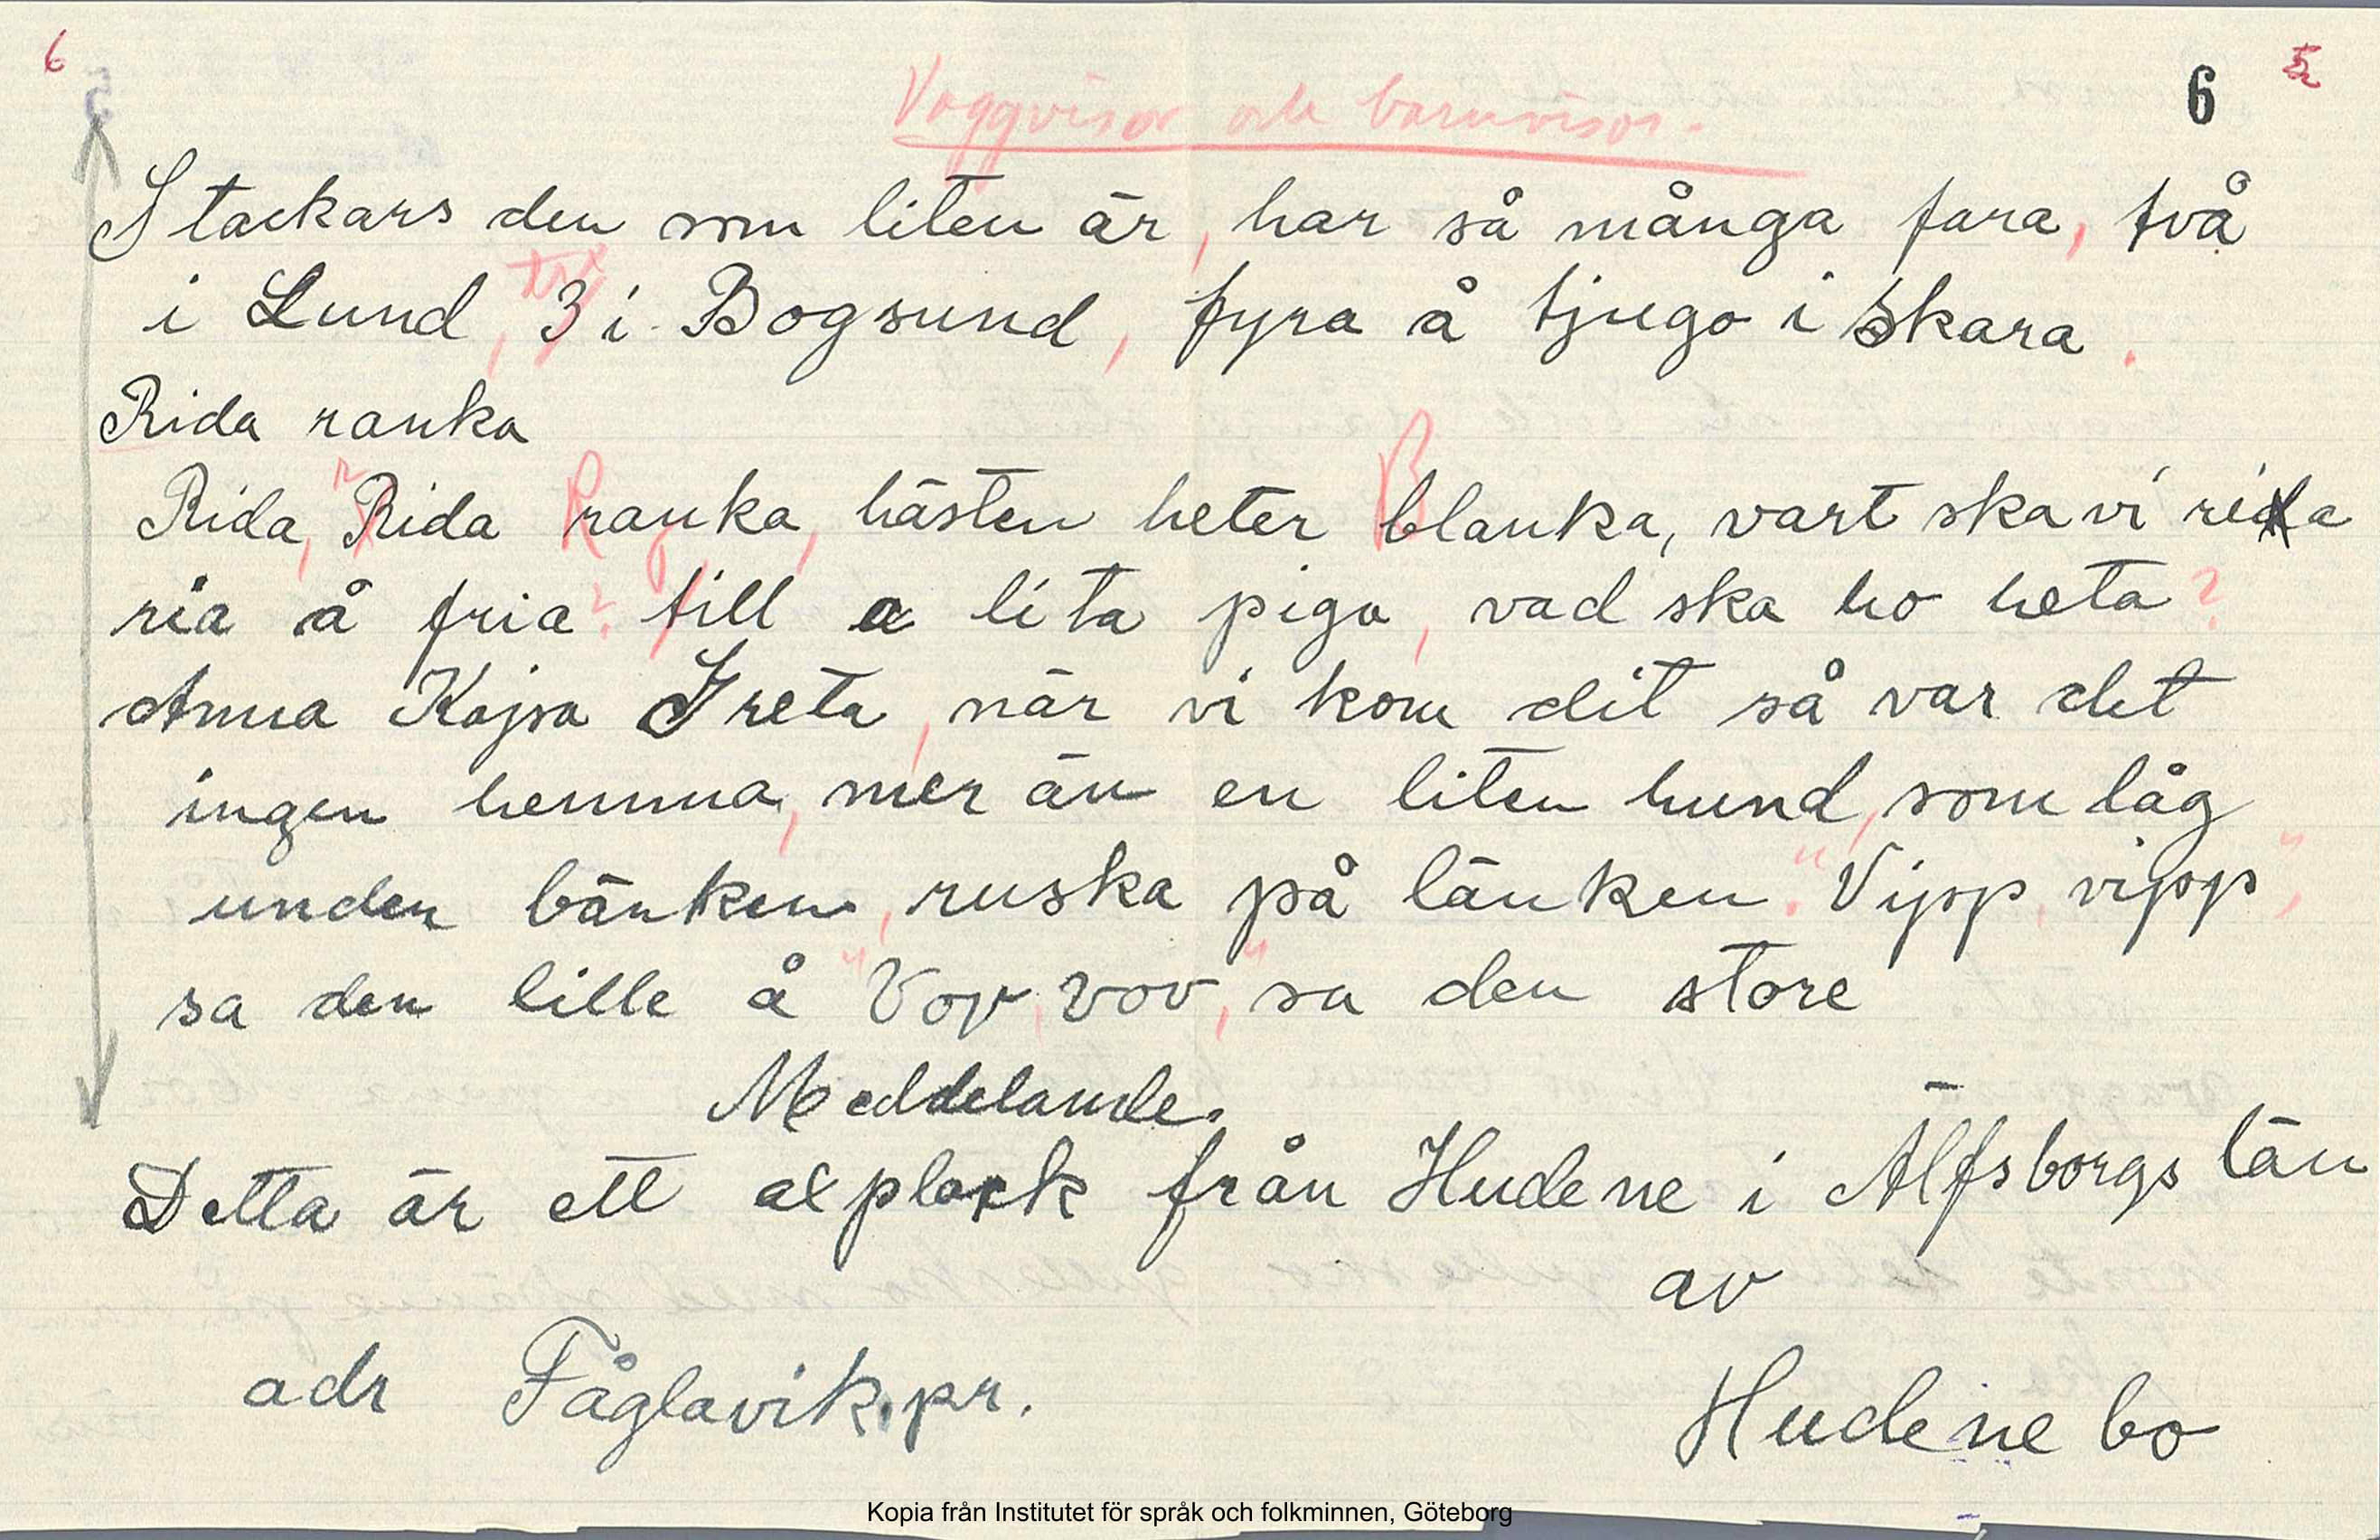 6
6 5
Vaggvisor och barnvisor.
Stackars den som liten är, har så många fara, två
tre
i Lund, 3 i Bogsund, fyra å tjugo i Skara.
Rida ranka
r R B
Rida, Rida ranka, hästen heter blanka, vart ska vi rida
ria å fria? till a lita piga, vad ska ho heta?
Anna Kajsa Greta, när vi kom dit så var det
ingen hemma, mer än en liten hund, som låg
under bänken, ruska på länken. "Vipp, vipp",
sa den lille å "Vov, vov", sa den store
Meddelande.
Detta är ett axplock från Hudene i Älfsborgs län
av
adr Fåglavik.pr.
Hudene bo
Kopia från Institutet för språk och folkminnen, Göteborg